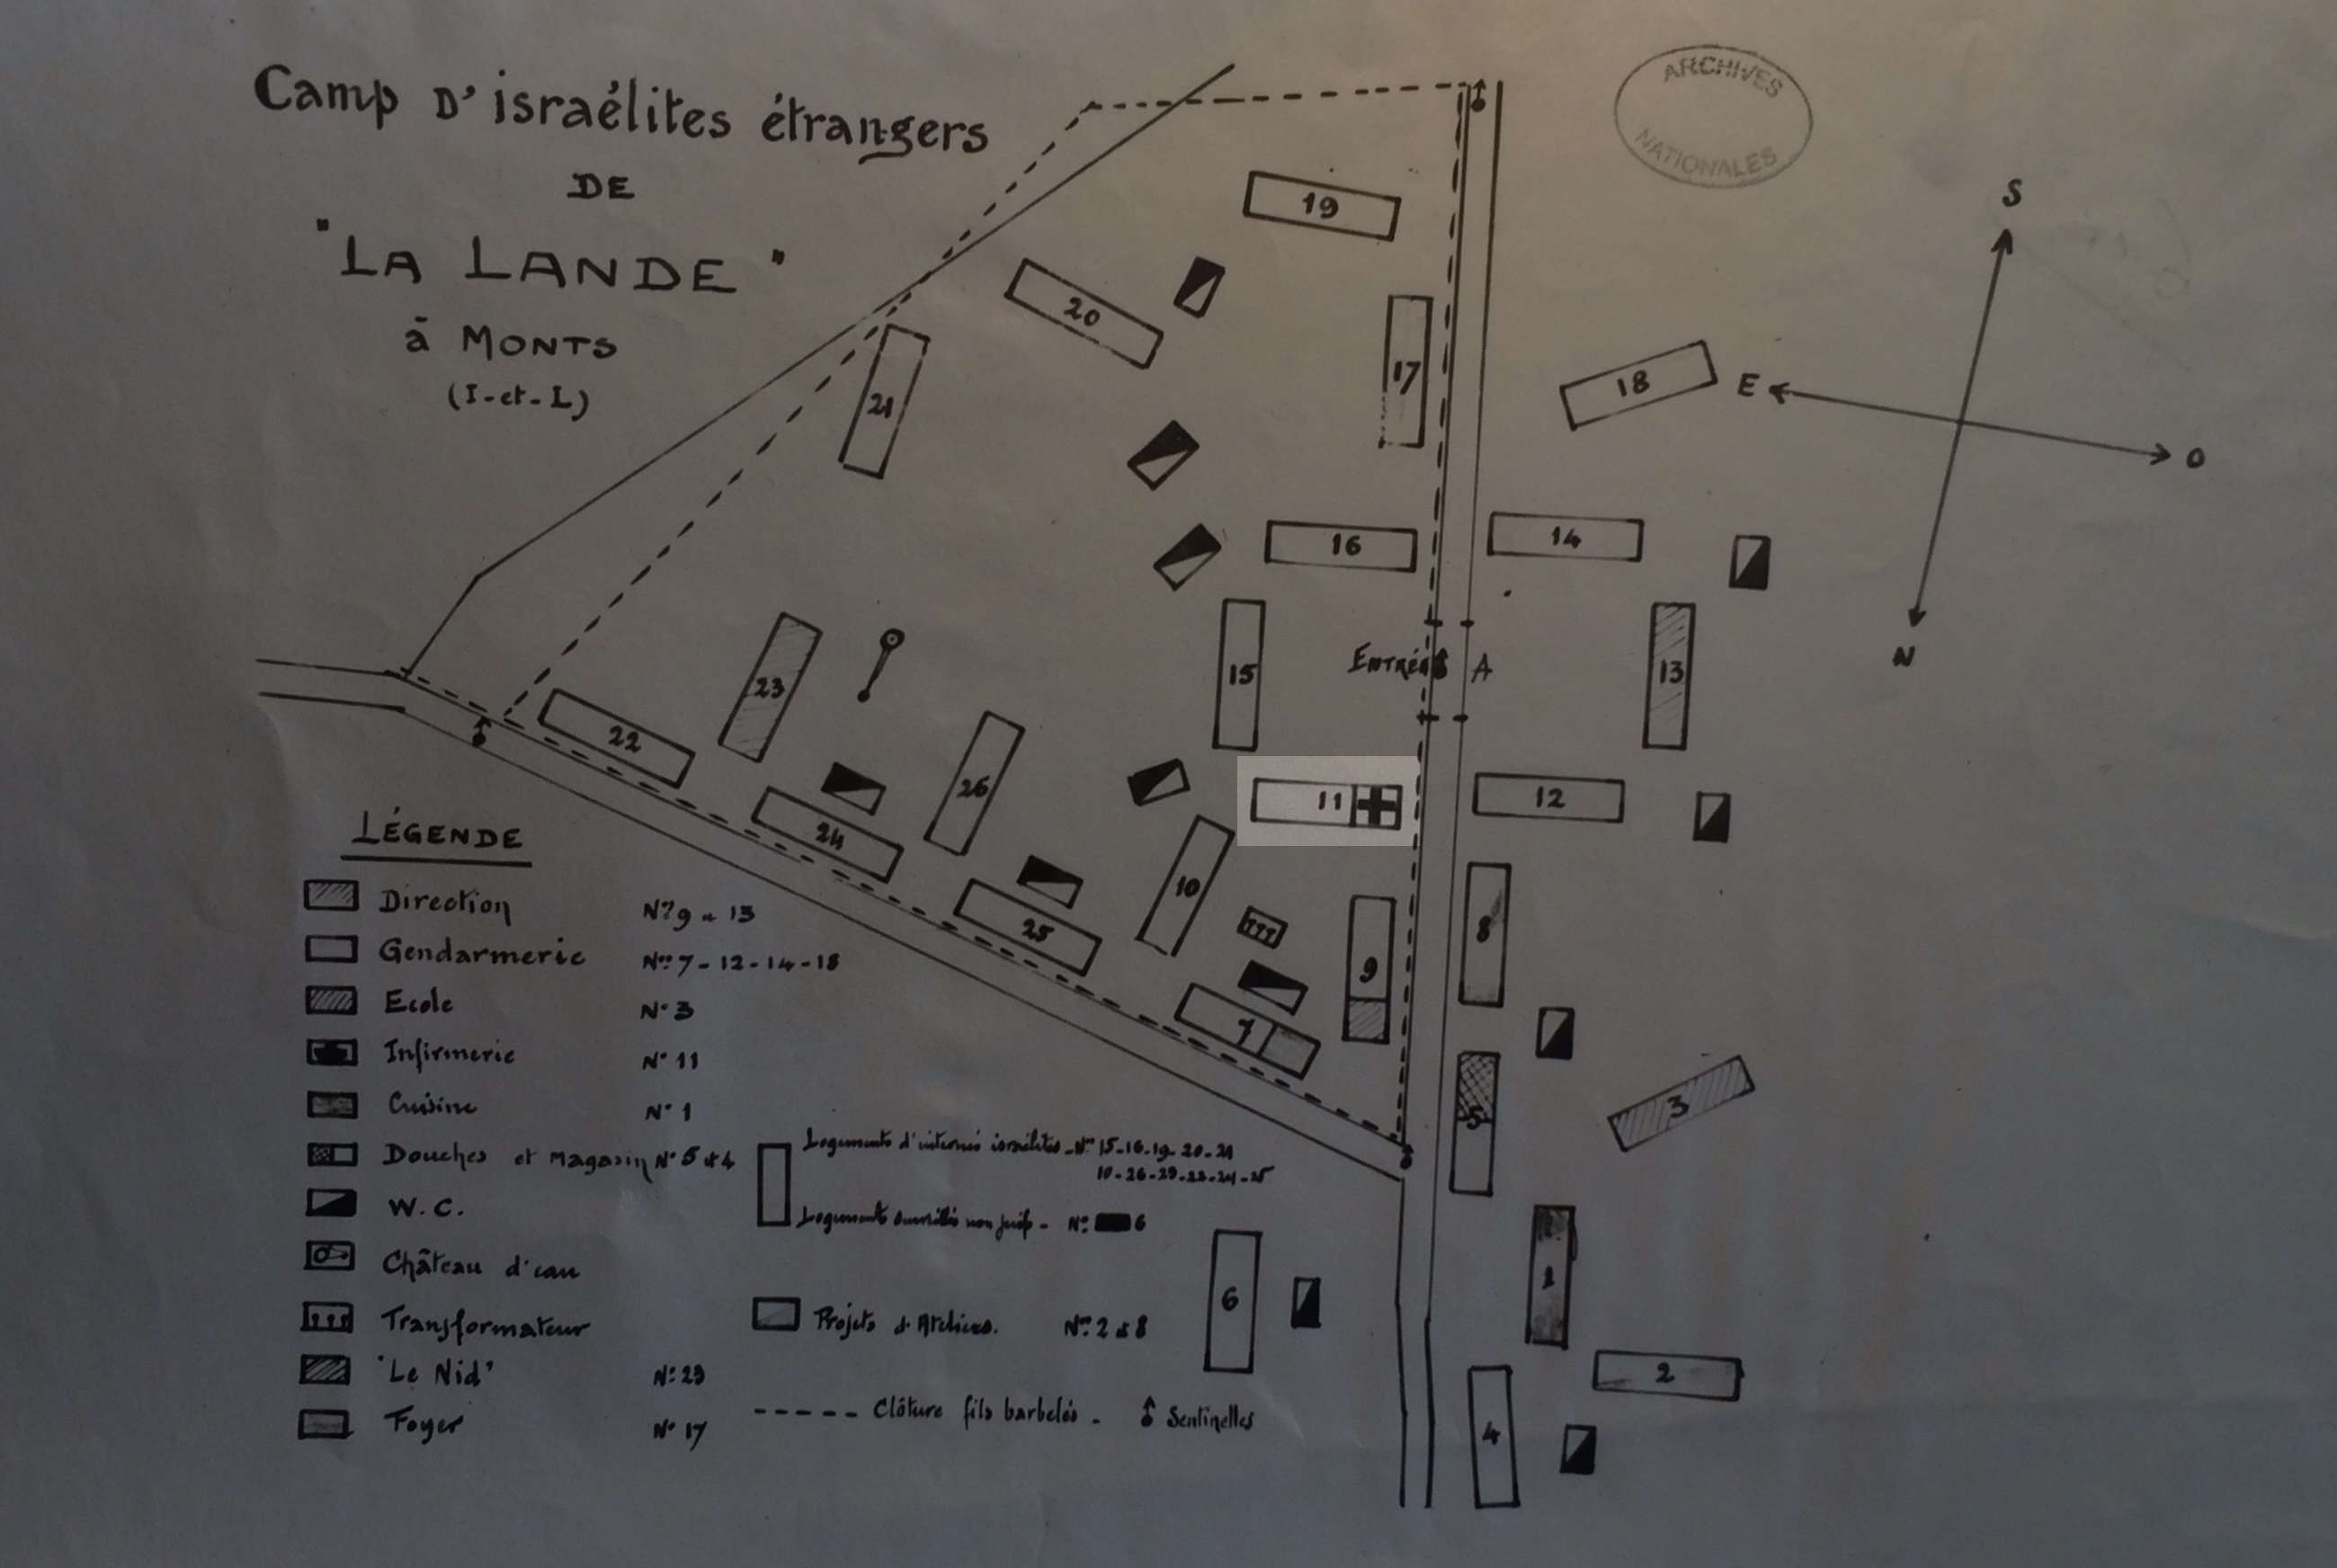 Camp D'israélites étrangers
DE
"LA LANDE"
à MONTS
(I-et-L)
ARCHIVES
NATIONALES
S
E
O
N
19
20
17
18
21
16
14
15
ENTRÉE
A
13
23
22
26
24
11
12
10
25
8
9
7
5
3
1
6
2
4
LÉGENDE
Direction Nos 9 - 13
Gendarmerie Nos 7-12-14-18
Ecole No 3
Infirmerie No 11
Cuisine No 1
Douches et magasin No 5 et 4
W.C.
Château d'eau
Transformateur
'Le Nid' No 23
Foyer No 17
Logements d'internés israélites - Nos 15-16-19-20-21
10-26-23-22-24-25
Logements non juifs - No 6
Projets d'Ateliers. Nos 2 et 8
Clôture fils barbelés -
Sentinelles